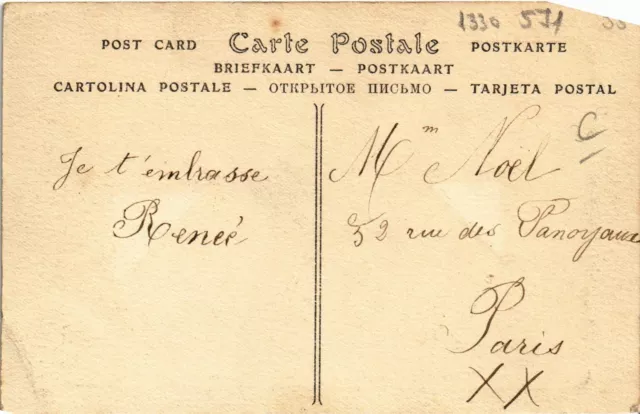 1330 571
POST CARD Carte Postale POSTKARTE
BRIEFKAART — POSTKAART
CARTOLINA POSTALE — ОТКРЫТОЕ ПИСЬМО — TARJETA POSTAL
Je t'embrasse
Renée
C
Mm Noël
52 rue des Panoyaux
Paris
XX